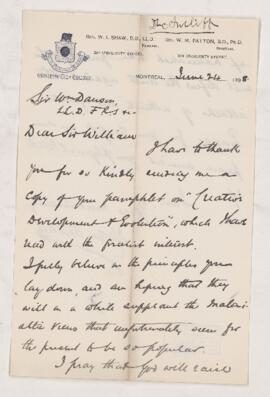 Rev. W. I. SHAW, D.D., LL.D.
Rev. W. M. PATTON, B.D., Ph.D.
MONTREAL, June 24 189
Sir Wm Dawson,
LL.D. F.R.S &c
Dear Sir William
I have to thank
you for so kindly sending me a
copy of your pamphlet on "Creative
Development & Evolution", which I have
read with the greatest interest.
I fully believe in the principles you
lay down, and am hoping that they
will in a while supplant the materi-
alistic views that unfortunately seem for
the present to be so popular.
I pray that God will